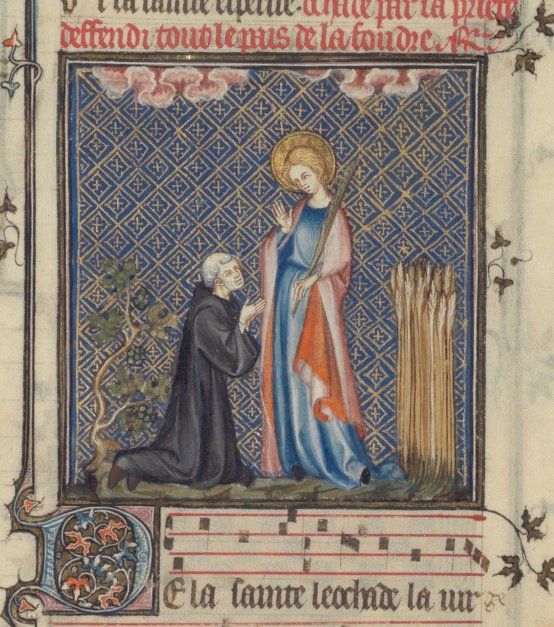 la sainte par la priere
deffendi tout le pais de la foudre.
DE la sainte leochade la uir